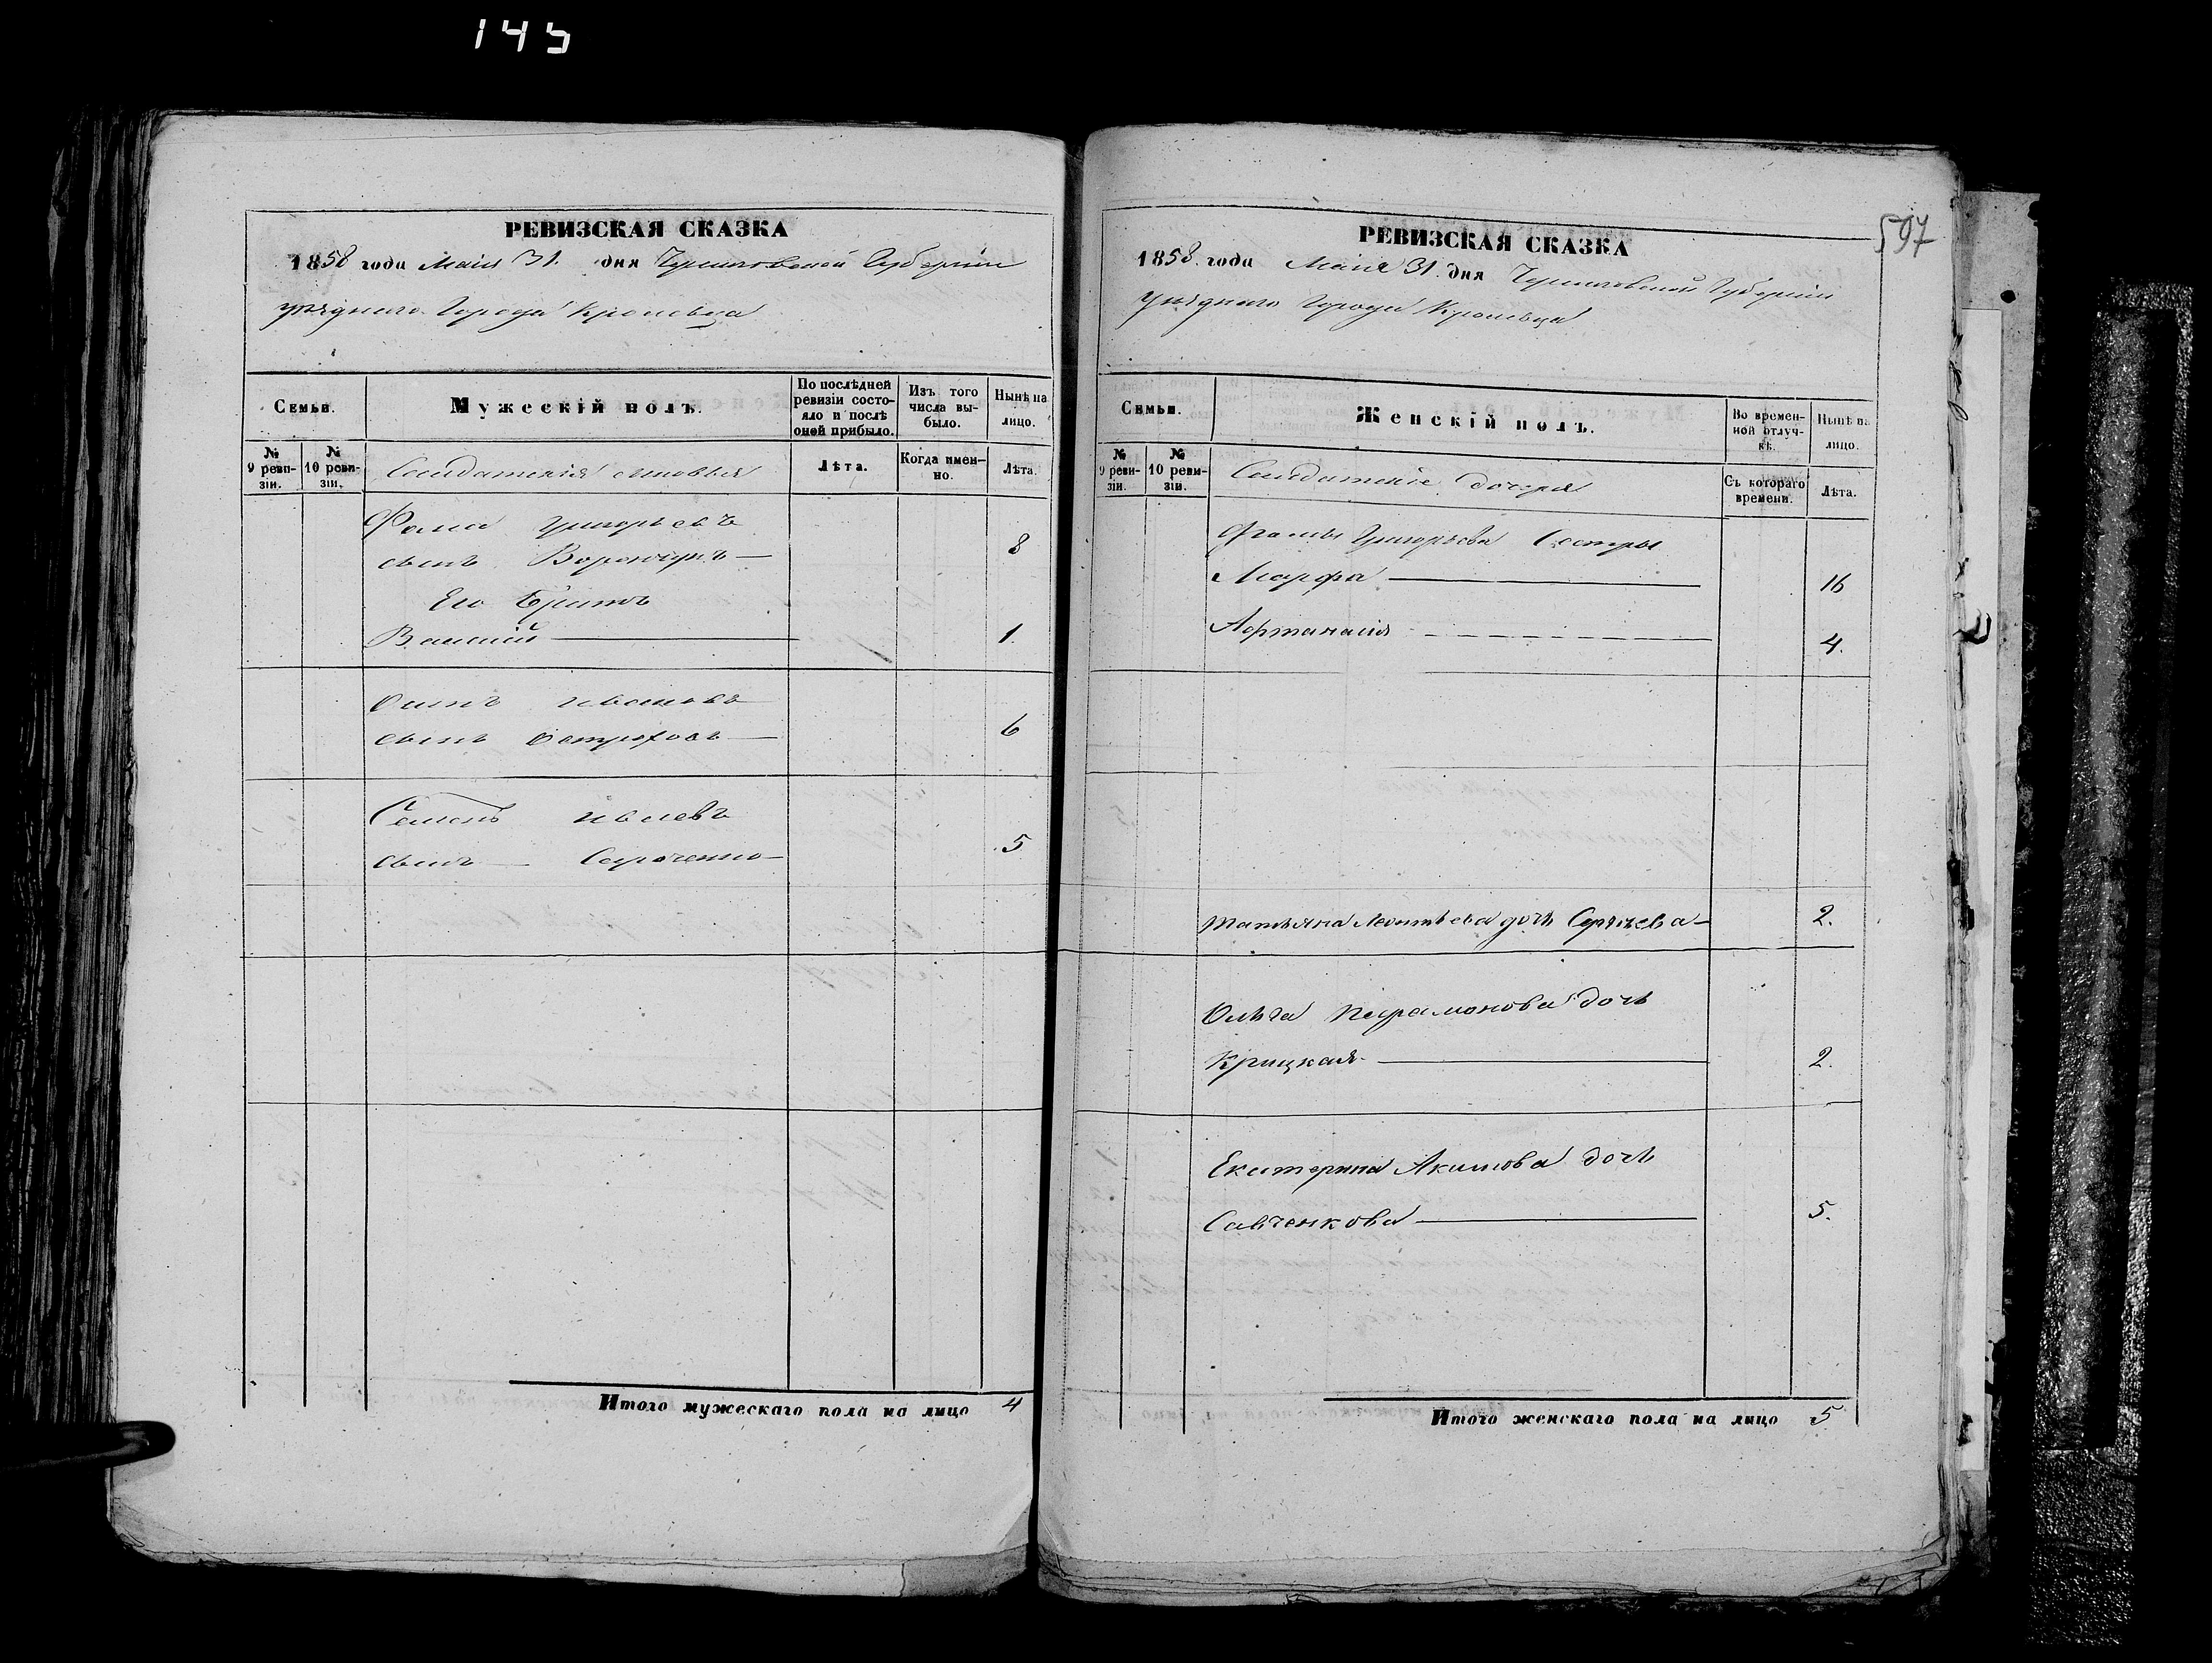 145
РЕВИЗСКАЯ СКАЗКА
1858 года Маія 31. дня Черниговской Губерніи
уѣзднаго Города Кролевца
Семьи.
Мужескій полъ.
По послѣдней ревизіи состо-
яло и послѣ
оной прибыло.
Изъ того
числа вы-
было.
Нынѣ на
лицо.
№
9 реви-
зіи.
№
10 реви-
зіи.
Солдатскія сыновья
Лѣта.
Когда имен-
но.
Лѣта.
Фома Григорьевъ
сынъ
8
Его братъ
Василій 1.
Ивановъ
сынъ 6
Семенъ
сынъ 5
Итого мужескаго пола на лицо 4
597
РЕВИЗСКАЯ СКАЗКА
1858. года Маія 31. дня Черниговской Губерніи
уѣзднаго Города Кролевца
Семьи.
Женскій полъ.
Во времен-
ной отлуч-
кѣ.
Нынѣ на
лицо.
№
9 реви-
зіи.
№
10 реви-
зіи.
Солдатскіе дочеря
Съ котораго
времени.
Лѣта.
Фомы Григорьева Сестры
Марфа 16
4.
Татьяна Леонтьева дочь 2.
Ольга Парамонова дочь
Крицкая 2.
Екатерина Акимова дочь
Савченкова 5.
Итого женскаго пола на лицо 5